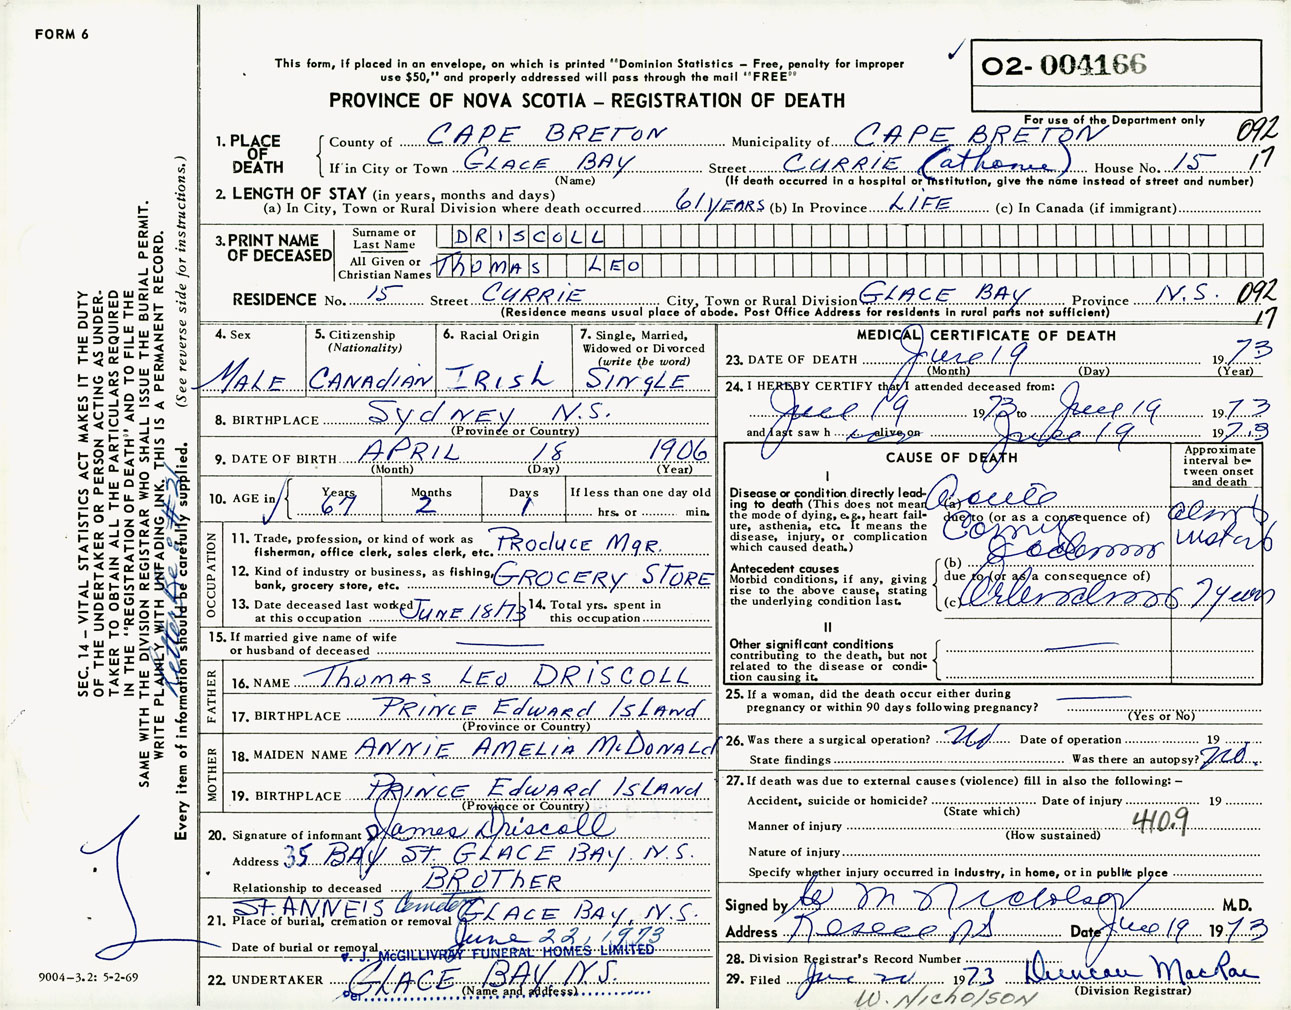 FORM 6
This form, if placed in an envelope, on which is printed "Dominion Statistics – Free, penalty for improper
use $50," and properly addressed will pass through the mail "FREE"
O2- 004166
PROVINCE OF NOVA SCOTIA – REGISTRATION OF DEATH
For use of the Department only
1. PLACE OF DEATH
County of CAPE BRETON Municipality of CAPE BRETON 092
If in City or Town GLACE BAY Street CURRIE (at home) House No. 15 17
(Name) (If death occurred in a hospital or institution, give the name instead of street and number)
2. LENGTH OF STAY (in years, months and days)
(a) In City, Town or Rural Division where death occurred 61 YEARS (b) In Province LIFE (c) In Canada (if immigrant)
3. PRINT NAME OF DECEASED
Surname or Last Name DRISCOLL
All Given or Christian Names THOMAS LEO
RESIDENCE No. 15 Street CURRIE City, Town or Rural Division GLACE BAY Province N.S. 092
(Residence means usual place of abode. Post Office Address for residents in rural parts not sufficient) 17
4. Sex
MALE
5. Citizenship (Nationality)
CANADIAN
6. Racial Origin
IRISH
7. Single, Married, Widowed or Divorced (write the word)
SINGLE
8. BIRTHPLACE SYDNEY N.S.
(Province or Country)
9. DATE OF BIRTH APRIL 18 1906
(Month) (Day) (Year)
10. AGE in Years 67 Months 2 Days 1 If less than one day old
hrs. or min.
OCCUPATION
11. Trade, profession, or kind of work as
fisherman, office clerk, sales clerk, etc. PRODUCE MGR.
12. Kind of industry or business, as fishing,
bank, grocery store, etc. GROCERY STORE
13. Date deceased last worked at this occupation JUNE 18/73
14. Total yrs. spent in this occupation
15. If married give name of wife
or husband of deceased
FATHER
16. NAME THOMAS LEO DRISCOLL
17. BIRTHPLACE PRINCE EDWARD ISLAND
(Province or Country)
MOTHER
18. MAIDEN NAME ANNIE AMELIA McDONALD
19. BIRTHPLACE PRINCE EDWARD ISLAND
(Province or Country)
20. Signature of informant James Driscoll
Address 35 BAY ST. GLACE BAY. N.S.
Relationship to deceased BROTHER
ST. ANNE'S Cemetery GLACE BAY, N.S.
21. Place of burial, cremation or removal
Date of burial or removal June 22, 1973
V. J. McGILLIVRAY FUNERAL HOMES LIMITED
22. UNDERTAKER GLACE BAY N.S.
(Name and address)
Per
MEDICAL CERTIFICATE OF DEATH
23. DATE OF DEATH June 19 1973
(Month) (Day) (Year)
24. I HEREBY CERTIFY that I attended deceased from:
June 19 1973 to June 19 1973
and last saw h alive on June 19 1973
CAUSE OF DEATH
Approximate interval between onset and death
I
Disease or condition directly lead-
ing to death (This does not mean
the mode of dying, e.g., heart fail-
ure, asthenia, etc. It means the
disease, injury, or complication
which caused death.)
(a) Acute
due to (or as a consequence of)
Antecedent causes
Morbid conditions, if any, giving
rise to the above cause, stating
the underlying condition last.
(b)
due to (or as a consequence of)
(c) 7 years
II
Other significant conditions
contributing to the death, but not
related to the disease or condi-
tion causing it.
25. If a woman, did the death occur either during
pregnancy or within 90 days following pregnancy?
(Yes or No)
26. Was there a surgical operation? No Date of operation 19
State findings Was there an autopsy? No.
27. If death was due to external causes (violence) fill in also the following: –
Accident, suicide or homicide? Date of injury 19
(State which)
Manner of injury 410.9
(How sustained)
Nature of injury
Specify whether injury occurred in industry, in home, or in public place
Signed by M Nicholson M.D.
Address Reserve NS Date June 19 1973
28. Division Registrar's Record Number
29. Filed June 20 1973 Duncan MacRae
(Division Registrar)
W. NICHOLSON
SEC. 14 – VITAL STATISTICS ACT MAKES IT THE DUTY
OF THE UNDERTAKER OR PERSON ACTING AS UNDER-
TAKER TO OBTAIN ALL THE PARTICULARS REQUIRED
IN THE "REGISTRATION OF DEATH" AND TO FILE THE
SAME WITH THE DIVISION REGISTRAR WHO SHALL ISSUE THE BURIAL PERMIT.
WRITE PLAINLY WITH UNFADING INK. THIS IS A PERMANENT RECORD.
Every item of information should be carefully supplied. (See reverse side for instructions.)
9004–3.2: 5-2-69